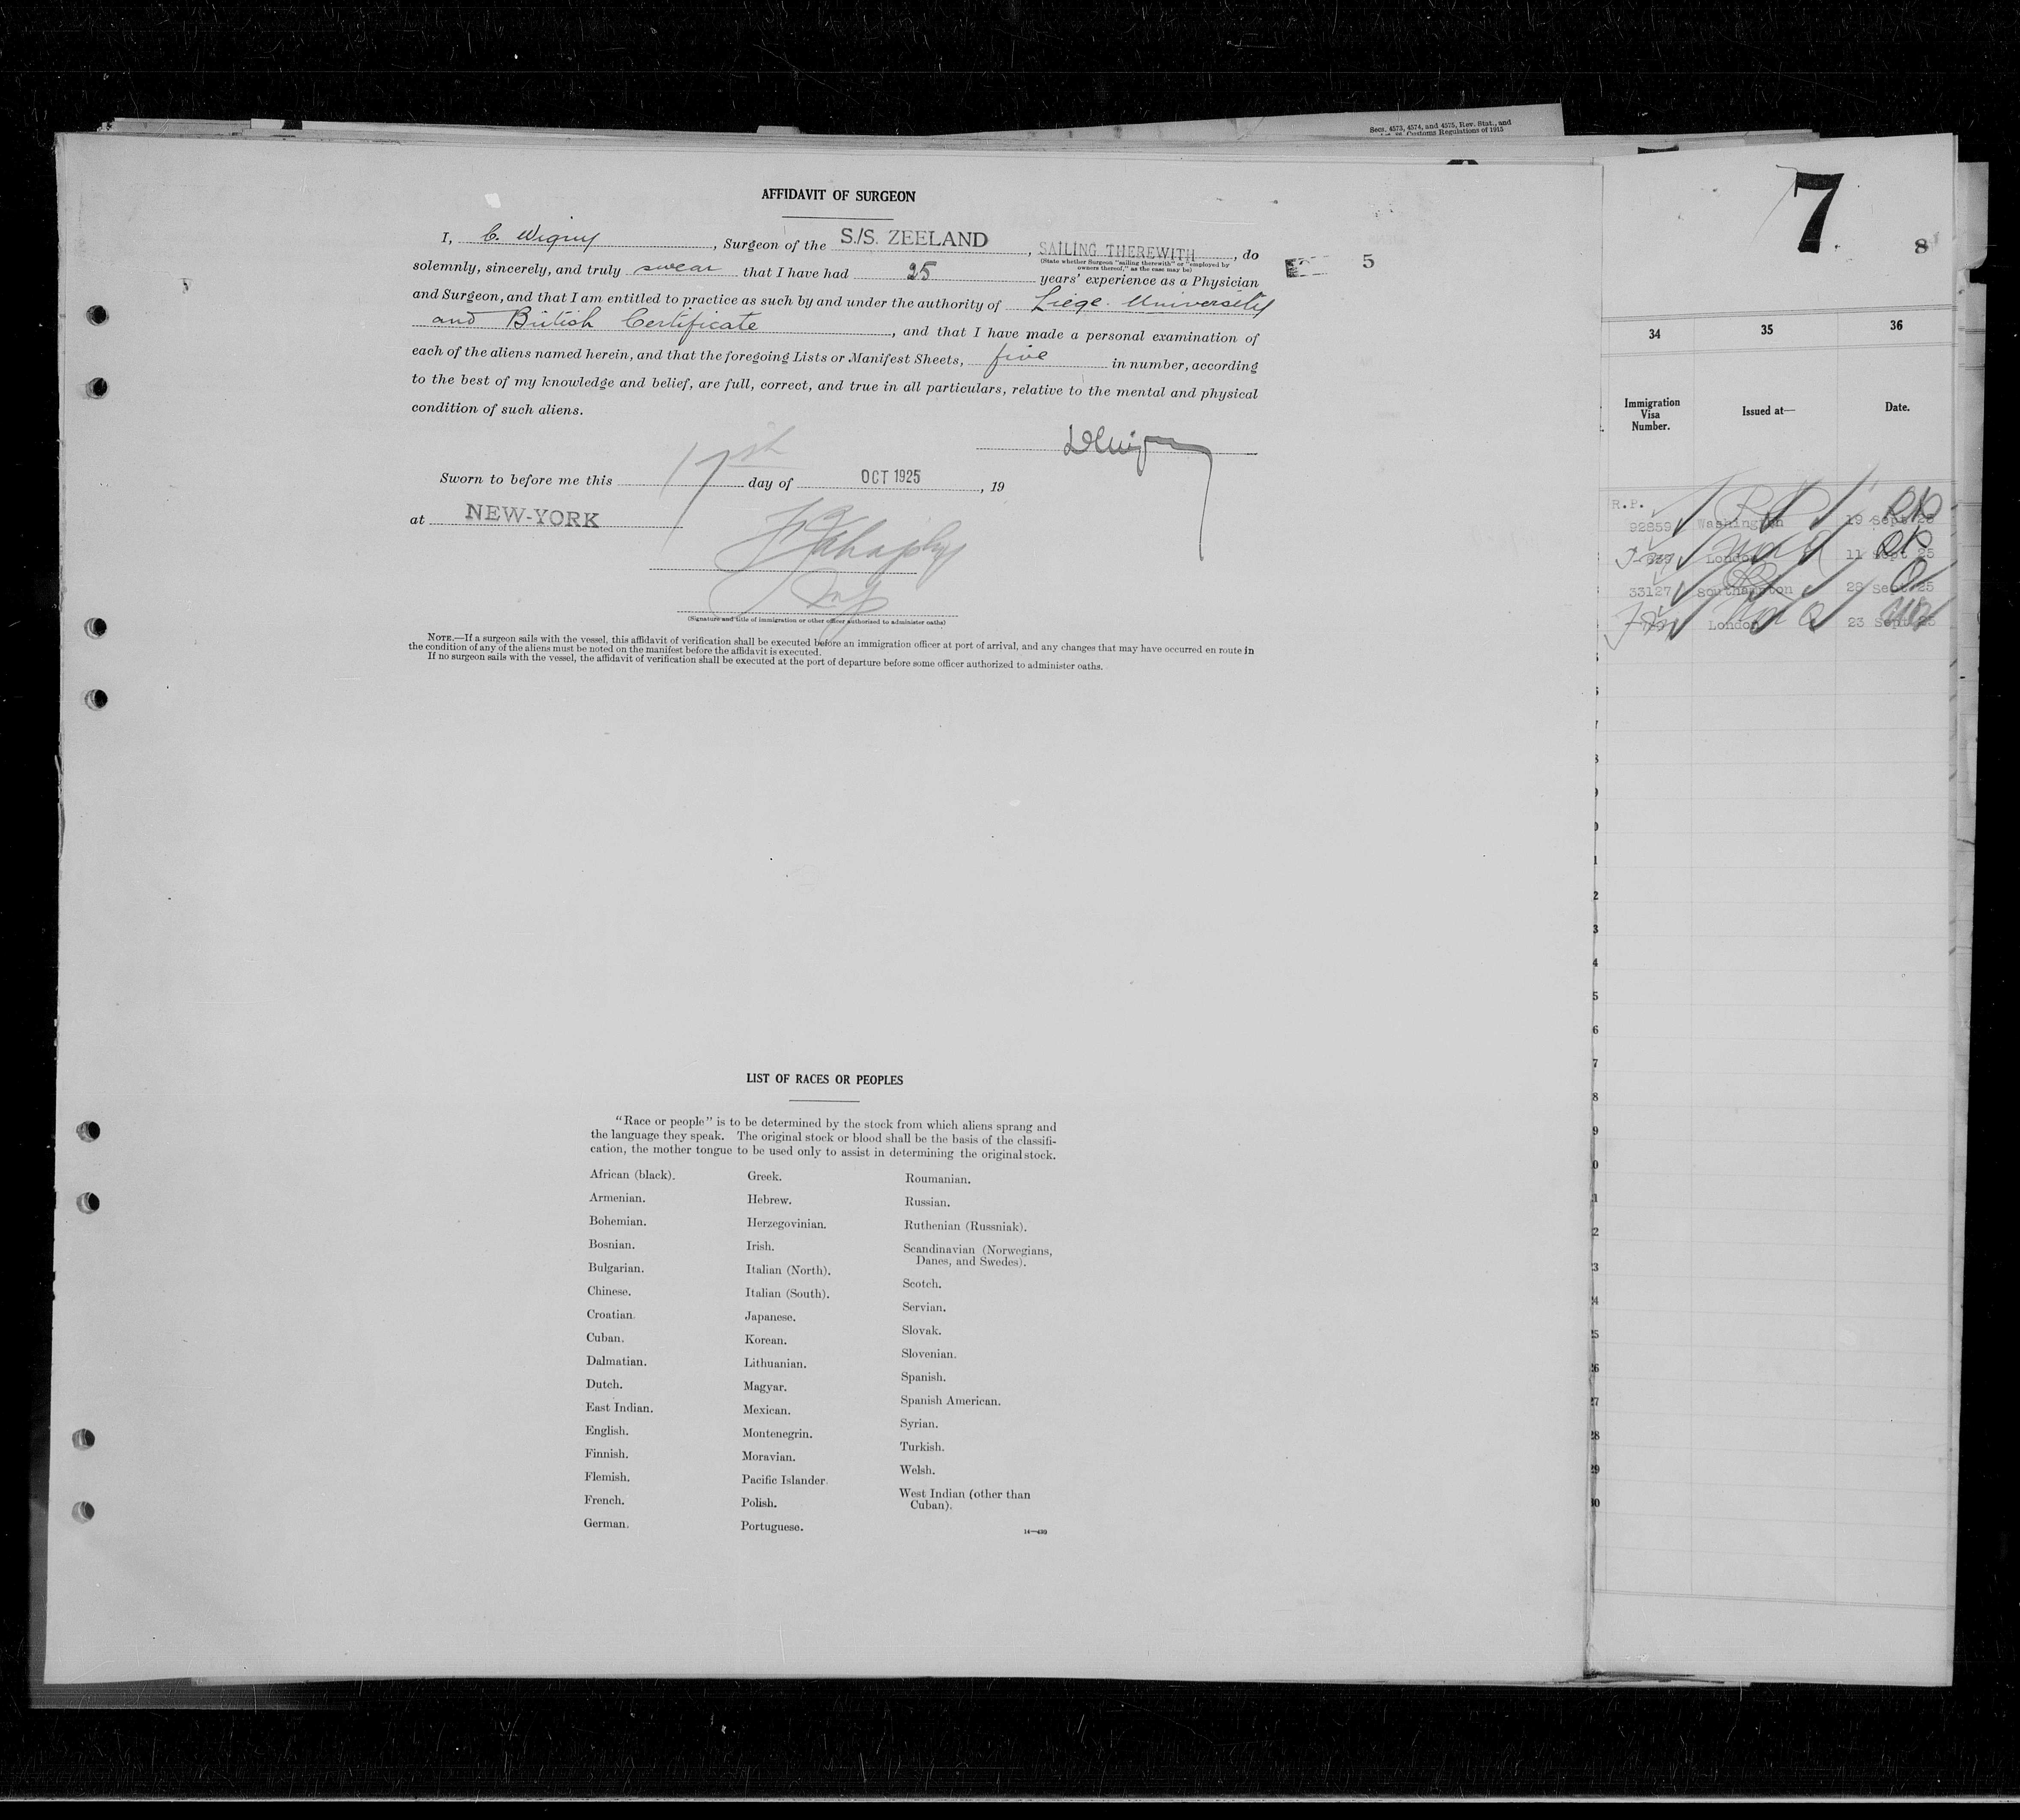 Secs. 4573, 4574, and 4575, Rev. Stat., and
Customs Regulations of 1915
AFFIDAVIT OF SURGEON
I, C. Wigny, Surgeon of the S./S. ZEELAND, SAILING THEREWITH, do
(State whether Surgeon "sailing therewith" or "employed by
owners thereof," as the case may be)
solemnly, sincerely, and truly swear that I have had 25 years' experience as a Physician
and Surgeon, and that I am entitled to practice as such by and under the authority of Liege. University
and British Certificate, and that I have made a personal examination of
each of the aliens named herein, and that the foregoing Lists or Manifest Sheets, five in number, according
to the best of my knowledge and belief, are full, correct, and true in all particulars, relative to the mental and physical
condition of such aliens.
Sworn to before me this 17th day of OCT 1925, 19
at NEW-YORK
(Signature and title of immigration or other officer authorized to administer oaths)
NOTE.—If a surgeon sails with the vessel, this affidavit of verification shall be executed before an immigration officer at port of arrival, and any changes that may have occurred en route in
the condition of any of the aliens must be noted on the manifest before the affidavit is executed.
If no surgeon sails with the vessel, the affidavit of verification shall be executed at the port of departure before some officer authorized to administer oaths.
5
LIST OF RACES OR PEOPLES
"Race or people" is to be determined by the stock from which aliens sprang and
the language they speak. The original stock or blood shall be the basis of the classifi-
cation, the mother tongue to be used only to assist in determining the original stock.
African (black).
Armenian.
Bohemian.
Bosnian.
Bulgarian.
Chinese.
Croatian.
Cuban.
Dalmatian.
Dutch.
East Indian.
English.
Finnish.
Flemish.
French.
German.
Greek.
Hebrew.
Herzegovinian.
Irish.
Italian (North).
Italian (South).
Japanese.
Korean.
Lithuanian.
Magyar.
Mexican.
Montenegrin.
Moravian.
Pacific Islander.
Polish.
Portuguese.
Roumanian.
Russian.
Ruthenian (Russniak).
Scandinavian (Norwegians,
Danes, and Swedes).
Scotch.
Servian.
Slovak.
Slovenian.
Spanish.
Spanish American.
Syrian.
Turkish.
Welsh.
West Indian (other than
Cuban).
14—430
7
8
34 35 36
Immigration
Visa
Number.
Issued at—
Date.
R.P.
92859 Washington 19 Sept 25
London 11 Sept 25
33127 Southampton 28 Sept 25
London 23 Sept 25